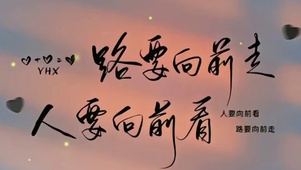 ♡+♡=♡
YHX
路要向前走
人要向前看
人要向前看
路要向前走